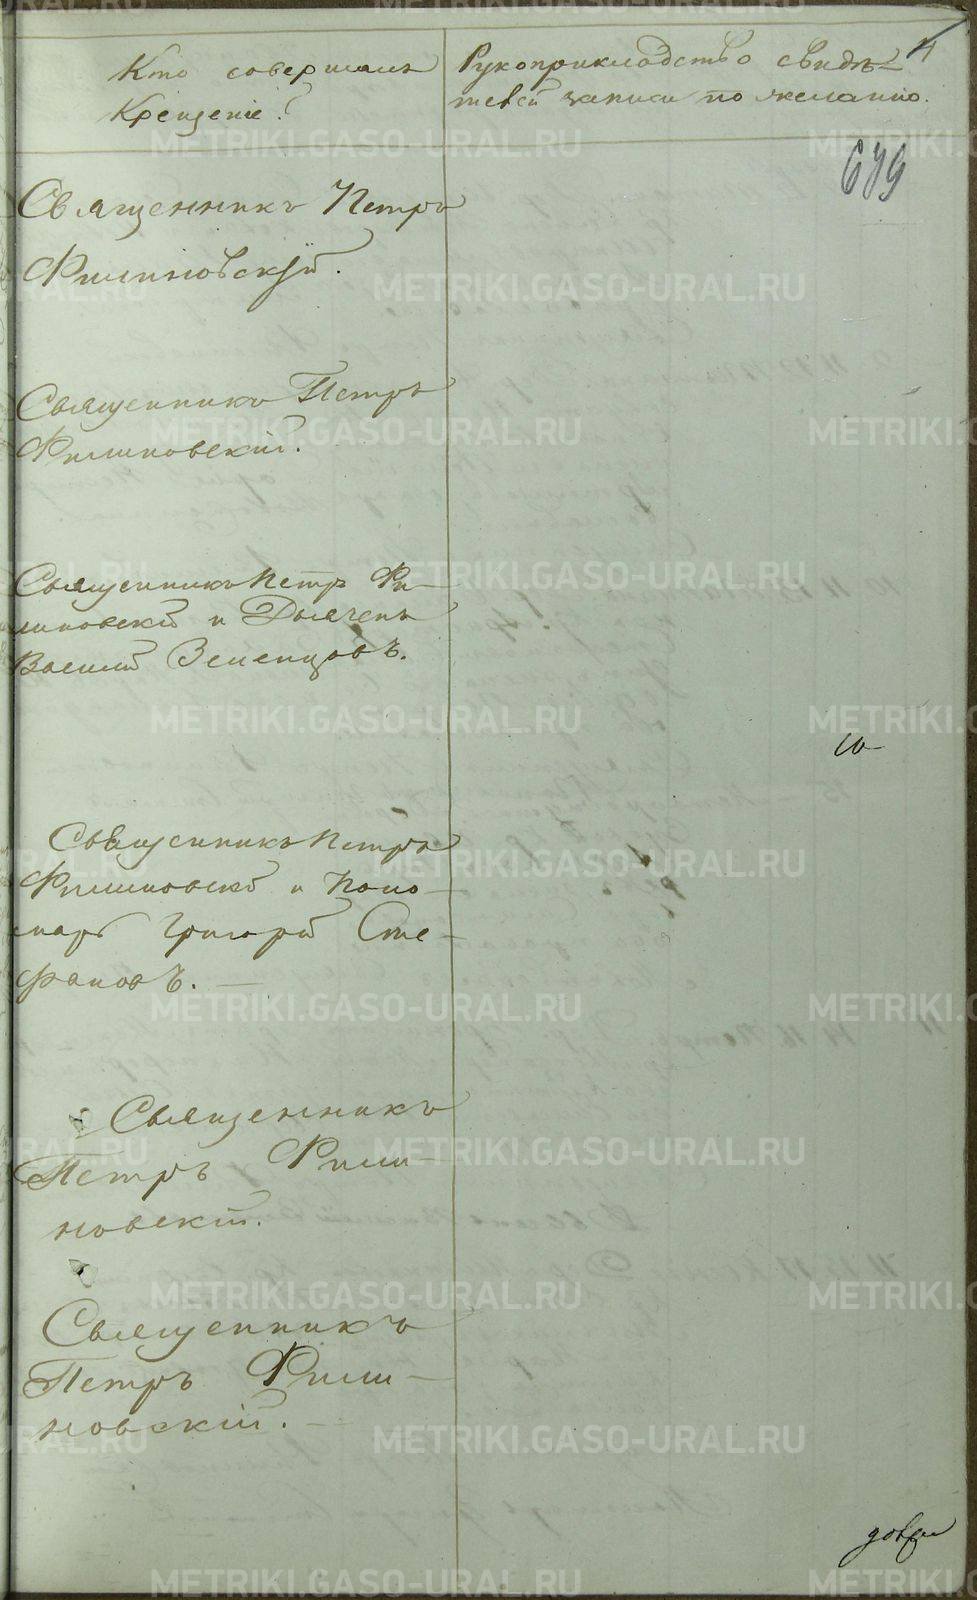 Кто совершалъ
Крещеніе?
Рукоприкладство свидѣ-
телей записи по желанію.
4
649
Священникъ Петръ
Филиновскій.
Священникъ Петръ
Филиновскій.
Священникъ Петръ Фи-
линовскій и Дьячекъ
Василій Зеленцовъ.
Священникъ Петръ
Филиновскій и Поно-
марь Григорій Сте-
фановъ. —
Священникъ
Петръ Фили-
новскій.
Священникъ
Петръ Фили-
новскій. —
METRIKI.GASO-URAL.RU